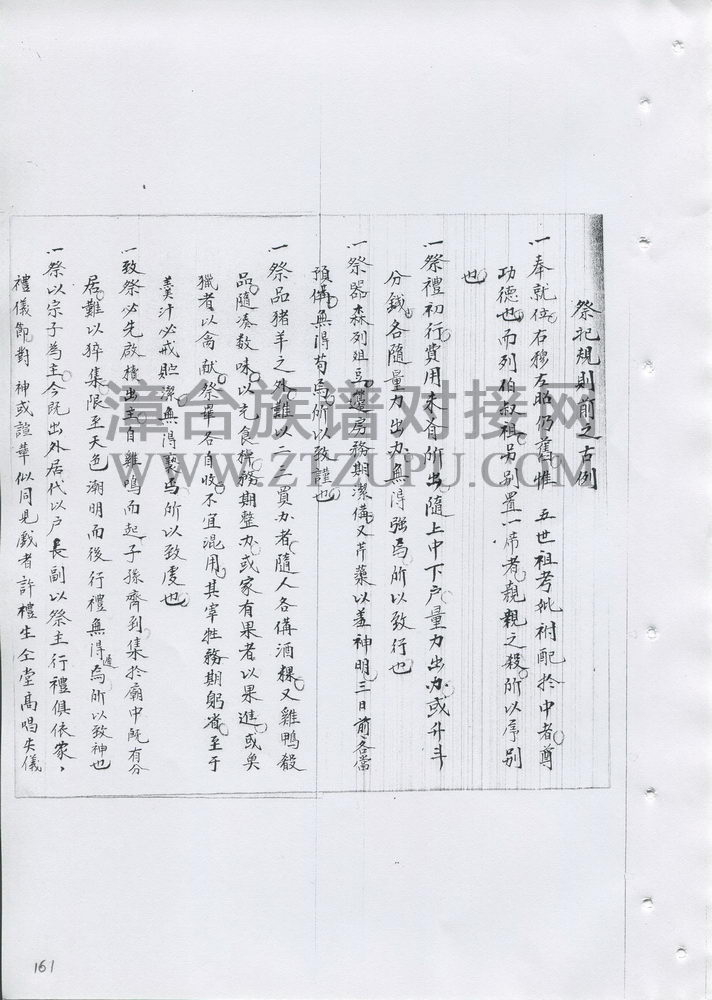 祭祀規則前之古例
一奉就位右穆左昭仍舊惟 五世祖考妣祔配於中者尊
功德也而列伯叔祖另別置一席者親親之殺所以序別
也
一祭禮初行費用未有所出隨上中下戶量力出办或升斗
分錢各隨量力出办無得强為所以致行也
一祭器森列俎豆籩房務期潔俻又芹藻以羞神明三日前各當
預俻無得苟為所以致謹也
一祭品猪羊之外雖以二三買办者隨人各俻酒粿又雞鴨殽
品隨湊数味以充食機務期整办或家有果者以果進或奐
獵者以禽献祭畢各自收不宜混用其宰牲務期躬省至于
羹汁必戒貯潔無得褻為所以致虔也
一致祭必先啟櫝出主自雞鳴而起子孫齊到集於廟中既有分
居難以猝集限至天色潮明而後行禮無得遲為所以致神也
一祭以宗子為主今既出外居代以户長副以祭主行禮俱依家
禮儀節對神或諠華似同見戲者許禮生仝堂高唱失儀
漳台族谱对接网
WWW.ZTZUPU.COM
161